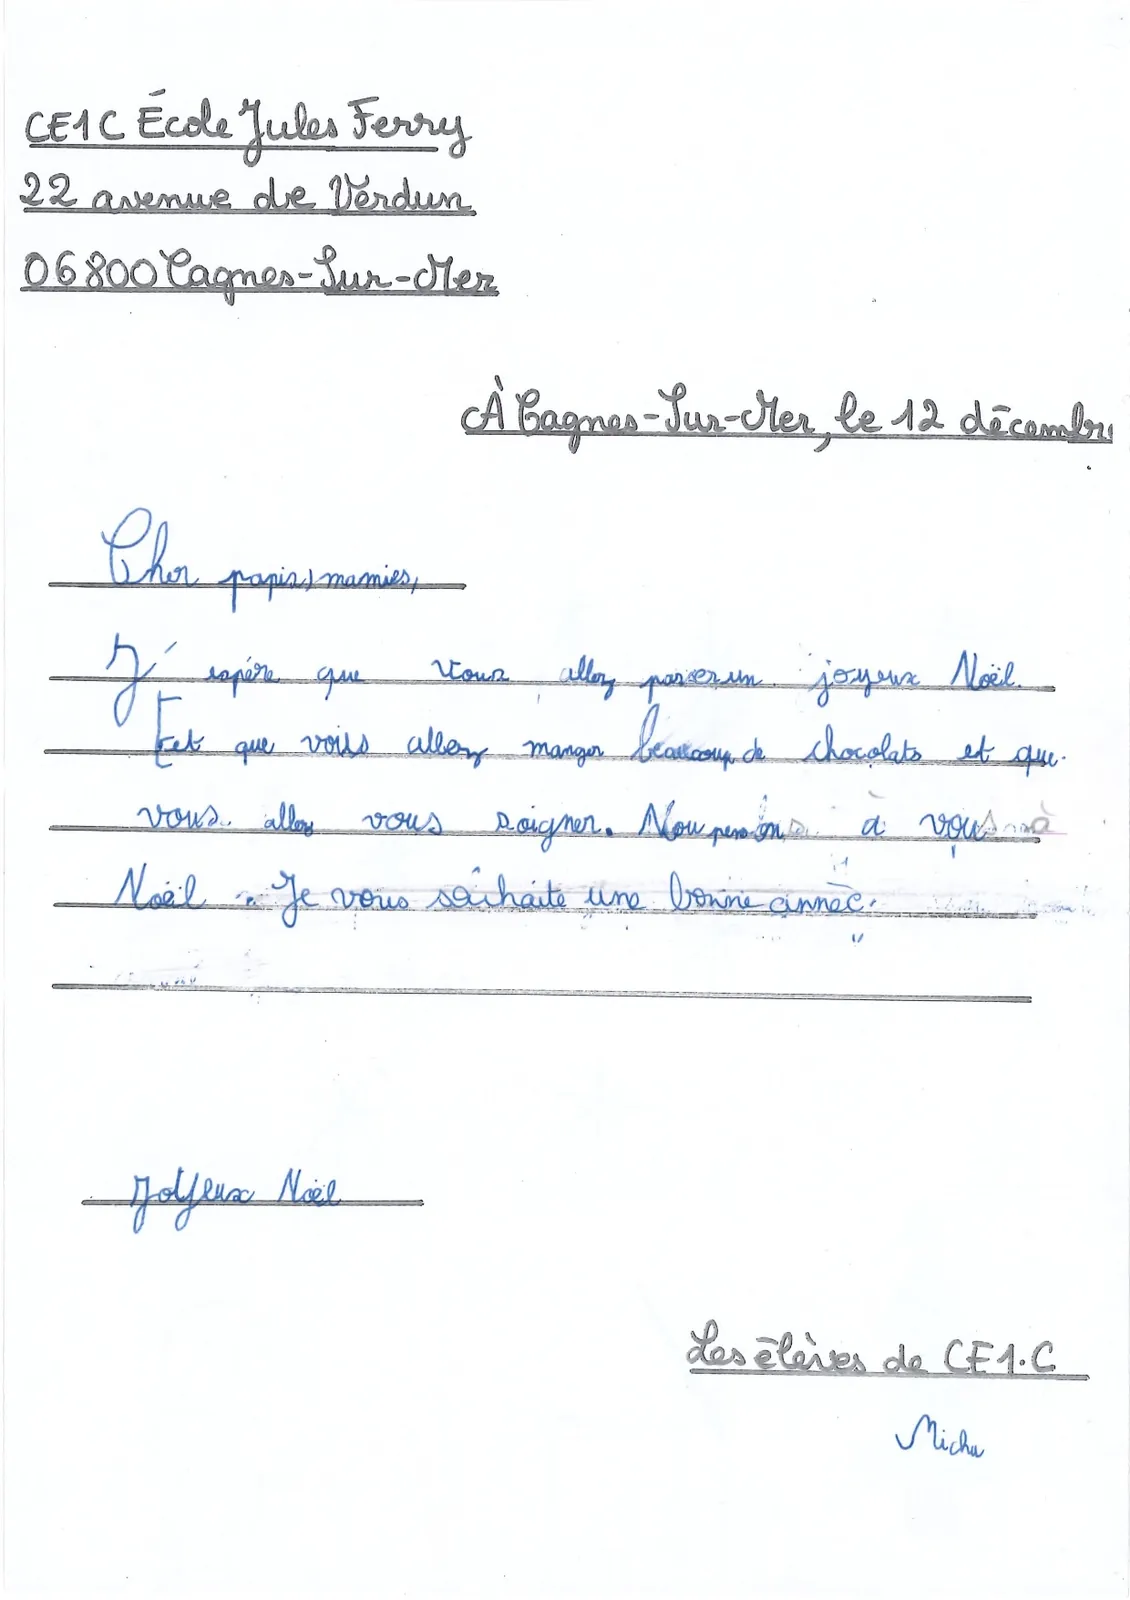 CE1C École Jules Ferry
22 avenue de Verdun
06800 Cagnes-Sur-Mer
À Cagnes-Sur-Mer, le 12 décembr
Cher papis, mamies,
J'espére que vous allez passer un joyeux Noël.
Eet que vous allez manger beaucoup de chocolats et que
vous allez vous soigner. Nou pensons à vous à
Noël. Je vous souhaite une bonne année.
Jolyeux Noël
Les élèves de CE1.C
Micha